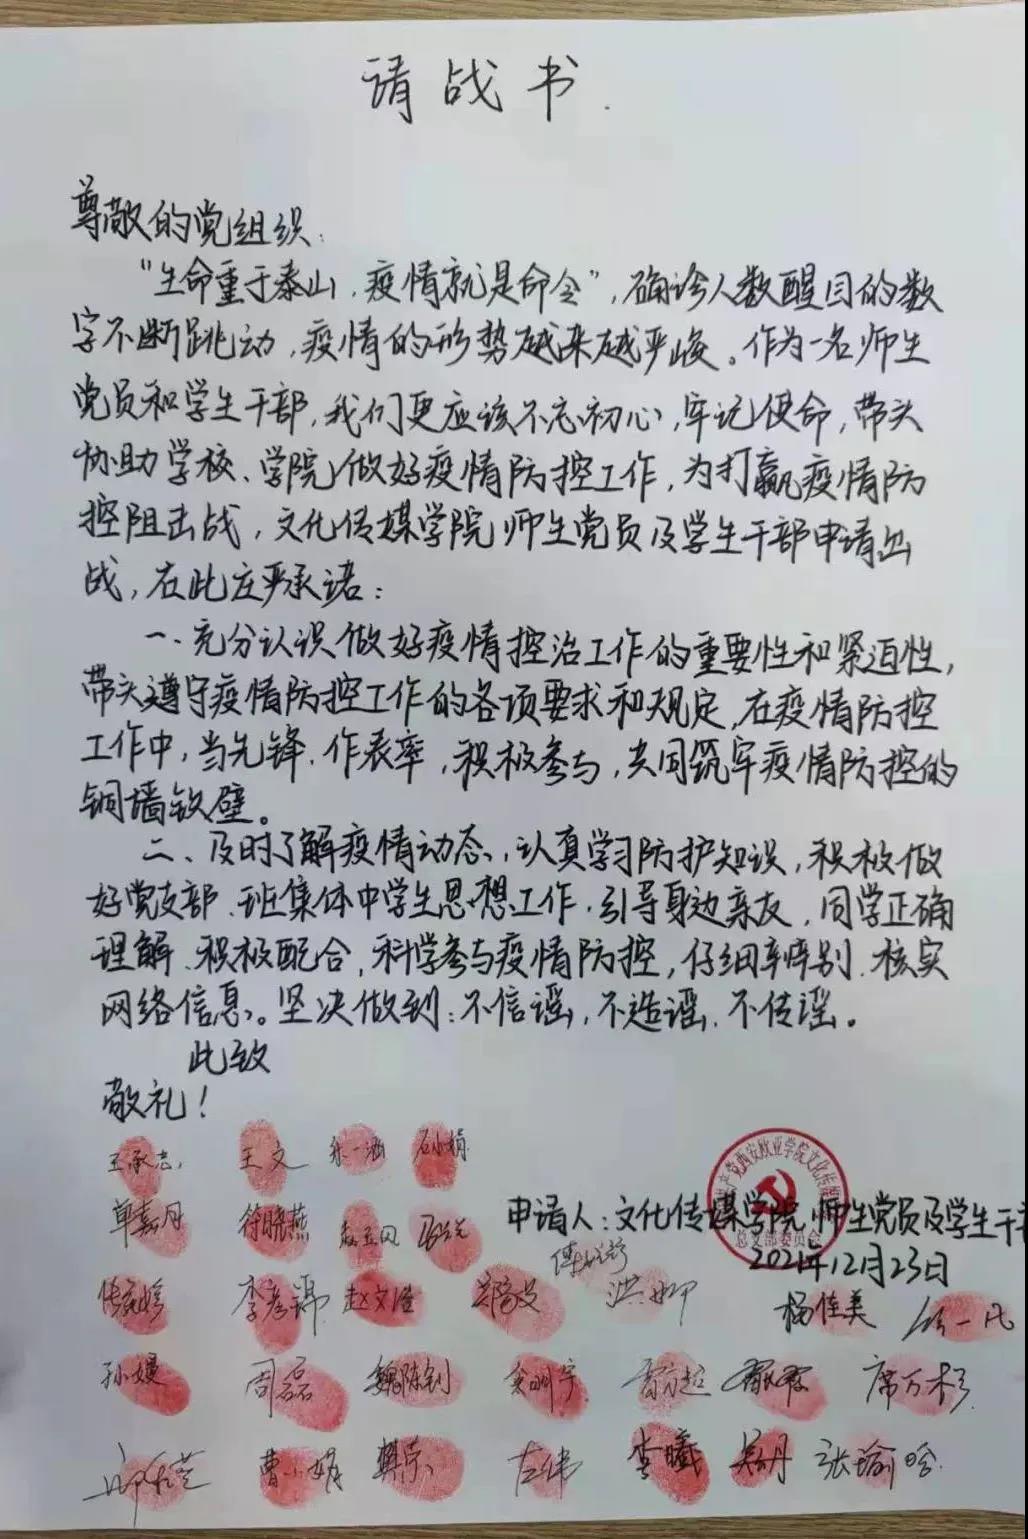 请战书.
尊敬的党组织:
“生命重于泰山,疫情就是命令”,确诊人数醒目的数
字不断跳动,疫情的形势越来越严峻。作为一名师生
党员和学生干部,我们更应该不忘初心,牢记使命,带头
协助学校、学院做好疫情防控工作,为打赢疫情防
控阻击战,文化传媒学院师生党员及学生干部申请出
战,在此庄严承诺:
一、充分认识做好疫情控治工作的重要性和紧迫性,
带头遵守疫情防控工作的各项要求和规定,在疫情防控
工作中,当先锋、作表率,积极参与,共同筑牢疫情防控的
铜墙铁壁。
二、及时了解疫情动态,认真学习防护知识,积极做
好党支部、班集体中学生思想工作,引导身边亲友、同学正确
理解、积极配合,科学参与疫情防控,仔细辨别、核实
网络信息。坚决做到:不信谣,不造谣,不传谣。
此致
敬礼!
王承志 王文 朱一涵 石小娟
中国共产党西安欧亚学院文化传媒
总支部委员会
单嘉月 符晓燕
申请人:文化传媒学院师生党员及学生干
2021年12月23日
李彦锦 赵文浩 杨佳美
孙媛 周磊 魏陈钊 席万杉
曹小娟 樊荣 左伟 李曦 吴丹 张瑜晗